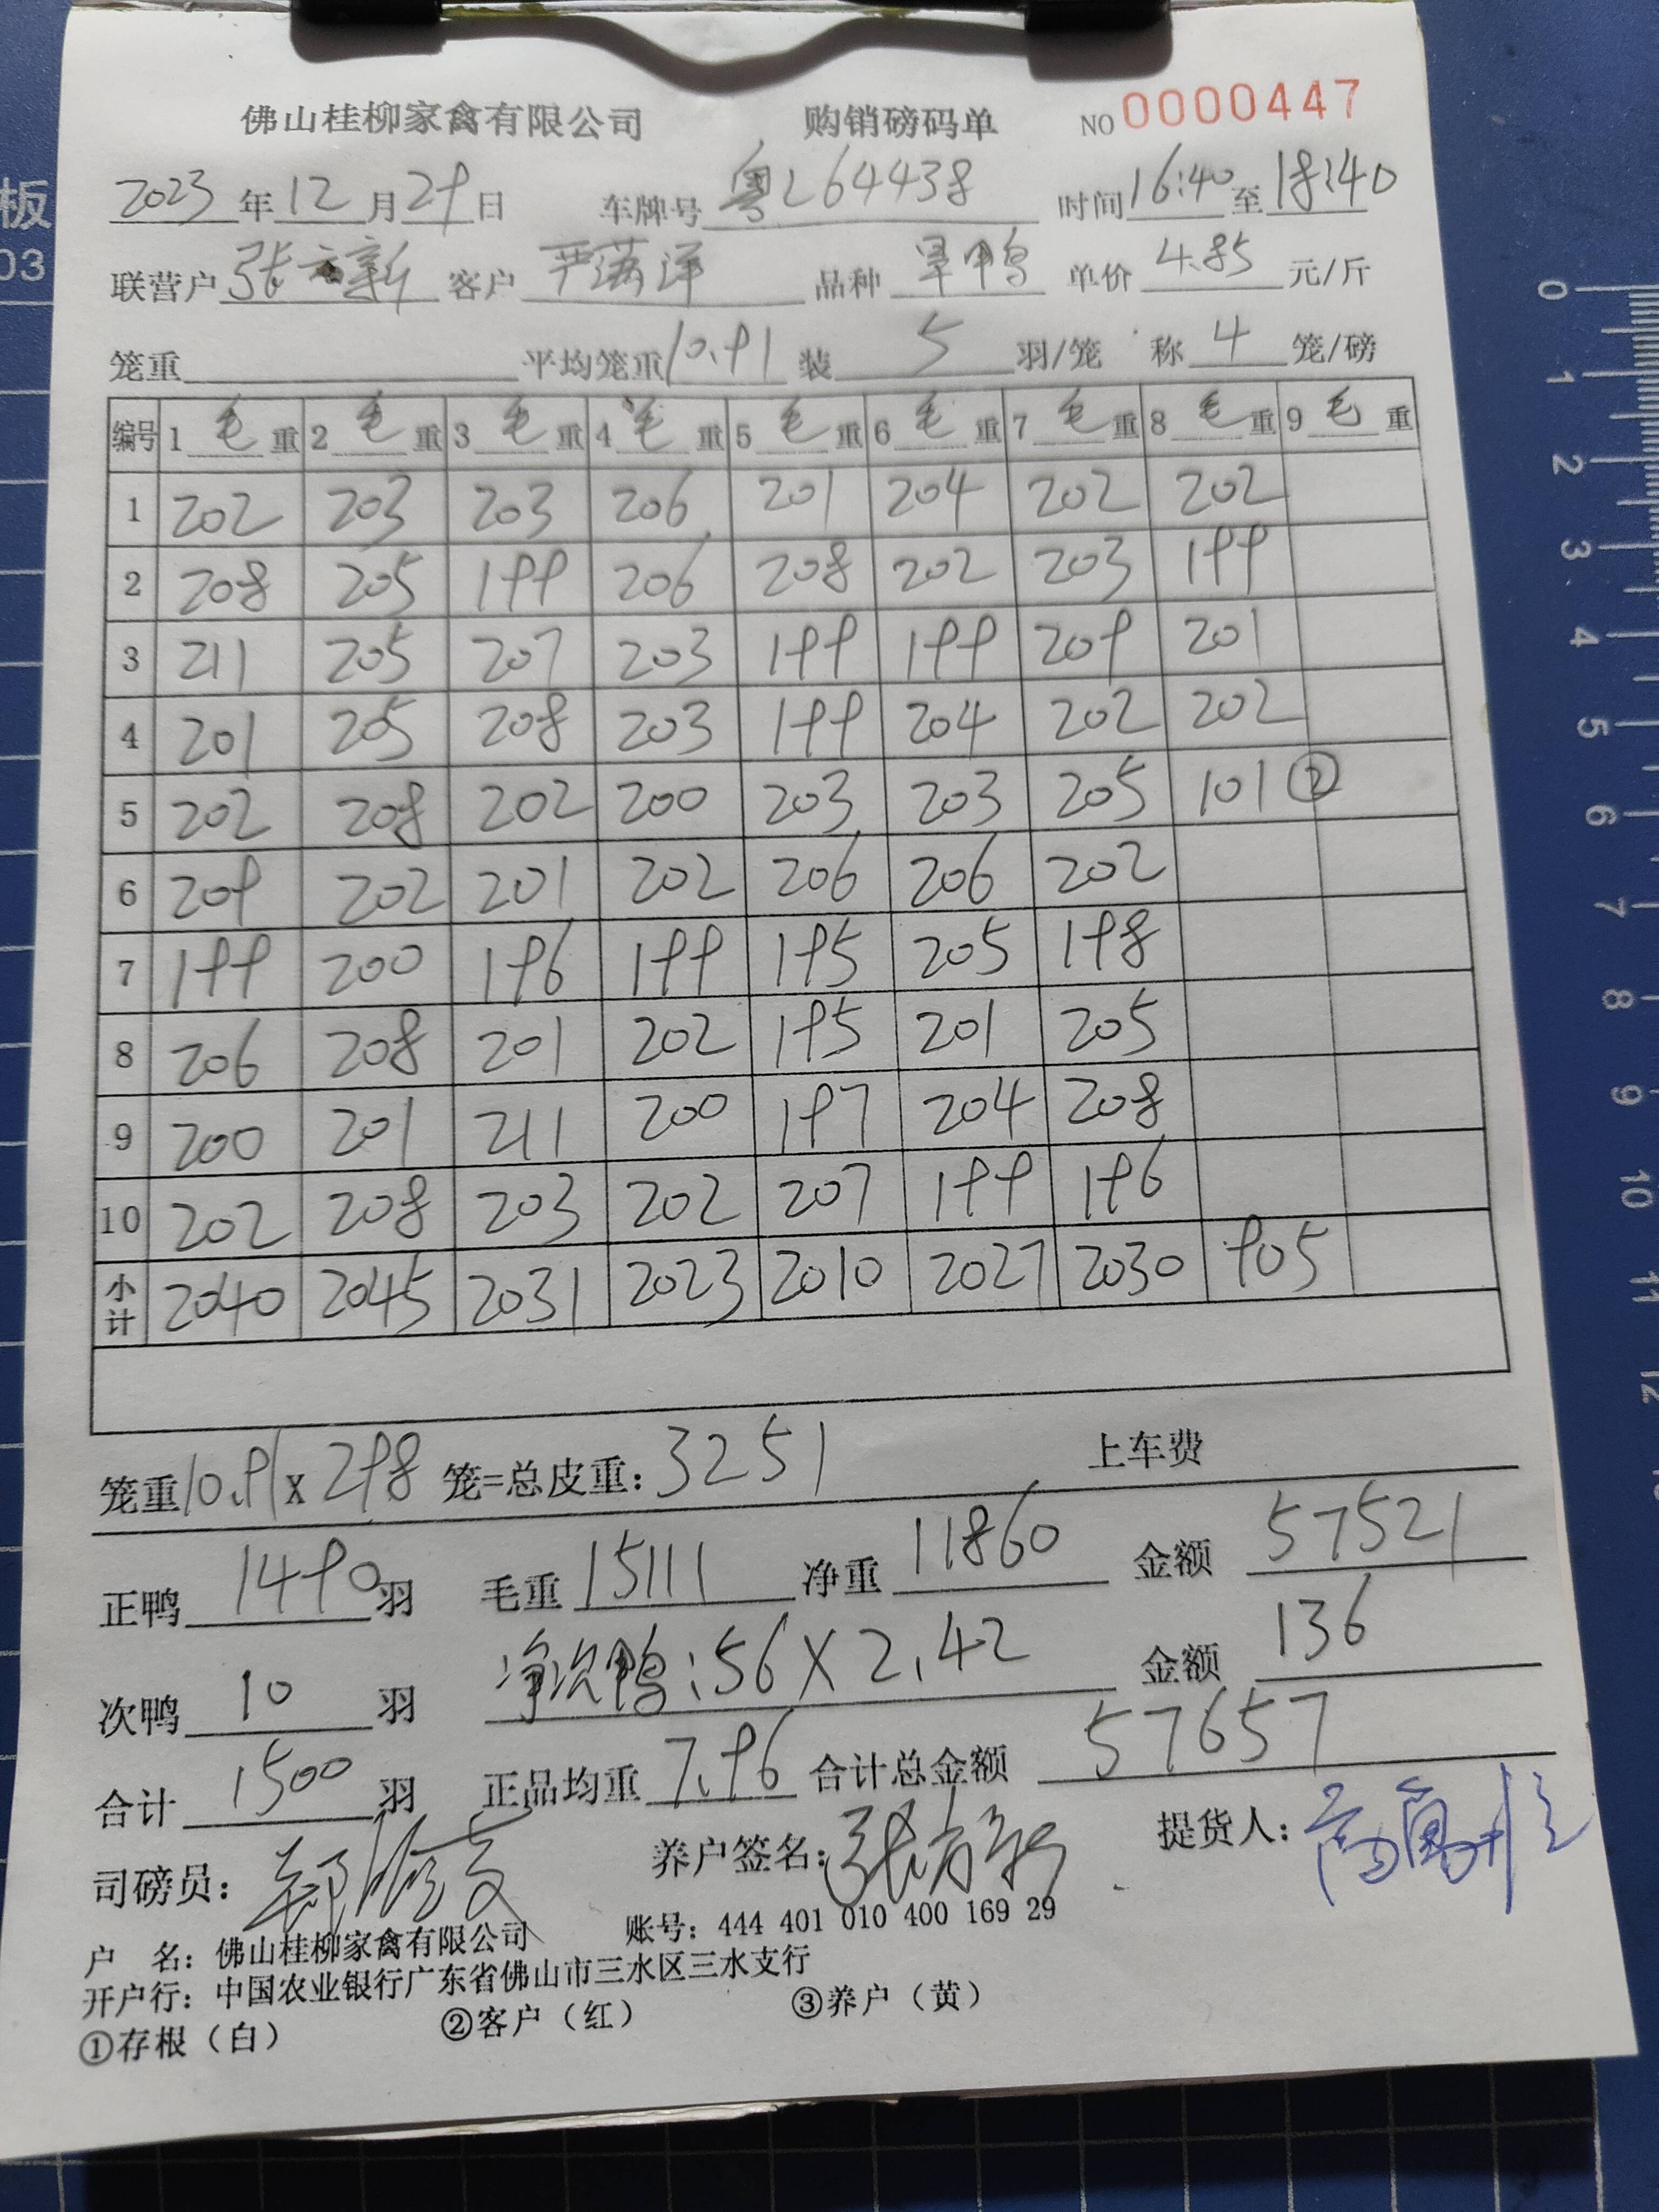 佛山桂柳家禽有限公司 购销磅码单 NO 0000447
2023年12月29日 车牌号 粤L64438 时间16:40至18:40
联营户 张方新 客户 严满洋 品种 旱鸭 单价 4.85 元/斤
笼重 平均笼重10.91 装 5 羽/笼 称 4 笼/磅
编号 1 毛 重 2 毛 重 3 毛 重 4 毛 重 5 毛 重 6 毛 重 7 毛 重 8 毛 重 9 毛 重
1 202 203 203 206 201 204 202 202
2 208 205 199 206 208 202 203 199
3 211 205 207 203 199 199 209 201
4 201 205 208 203 199 204 202 202
5 202 208 202 200 203 203 205 101 ②
6 209 202 201 202 206 206 202
7 199 200 196 199 195 205 198
8 206 208 201 202 195 201 205
9 200 201 211 200 197 204 208
10 202 208 203 202 207 199 196
小计 2040 2045 2031 2023 2010 2027 2030 905
笼重10.91 x 298 笼=总皮重: 3251 上车费
正鸭 1490 羽 毛重 15111 净重 11860 金额 57521
次鸭 10 羽 净次鸭:56×2.42 金额 136
合计 1500 羽 正品均重 7.96 合计总金额 57657
司磅员: 养户签名: 张方新 提货人:
户 名: 佛山桂柳家禽有限公司 账号: 444 401 010 400 169 29
开户行: 中国农业银行广东省佛山市三水区三水支行
①存根（白） ②客户（红） ③养户（黄）
板
03
0
1
2
3
4
5
6
7
8
9
10
11
12